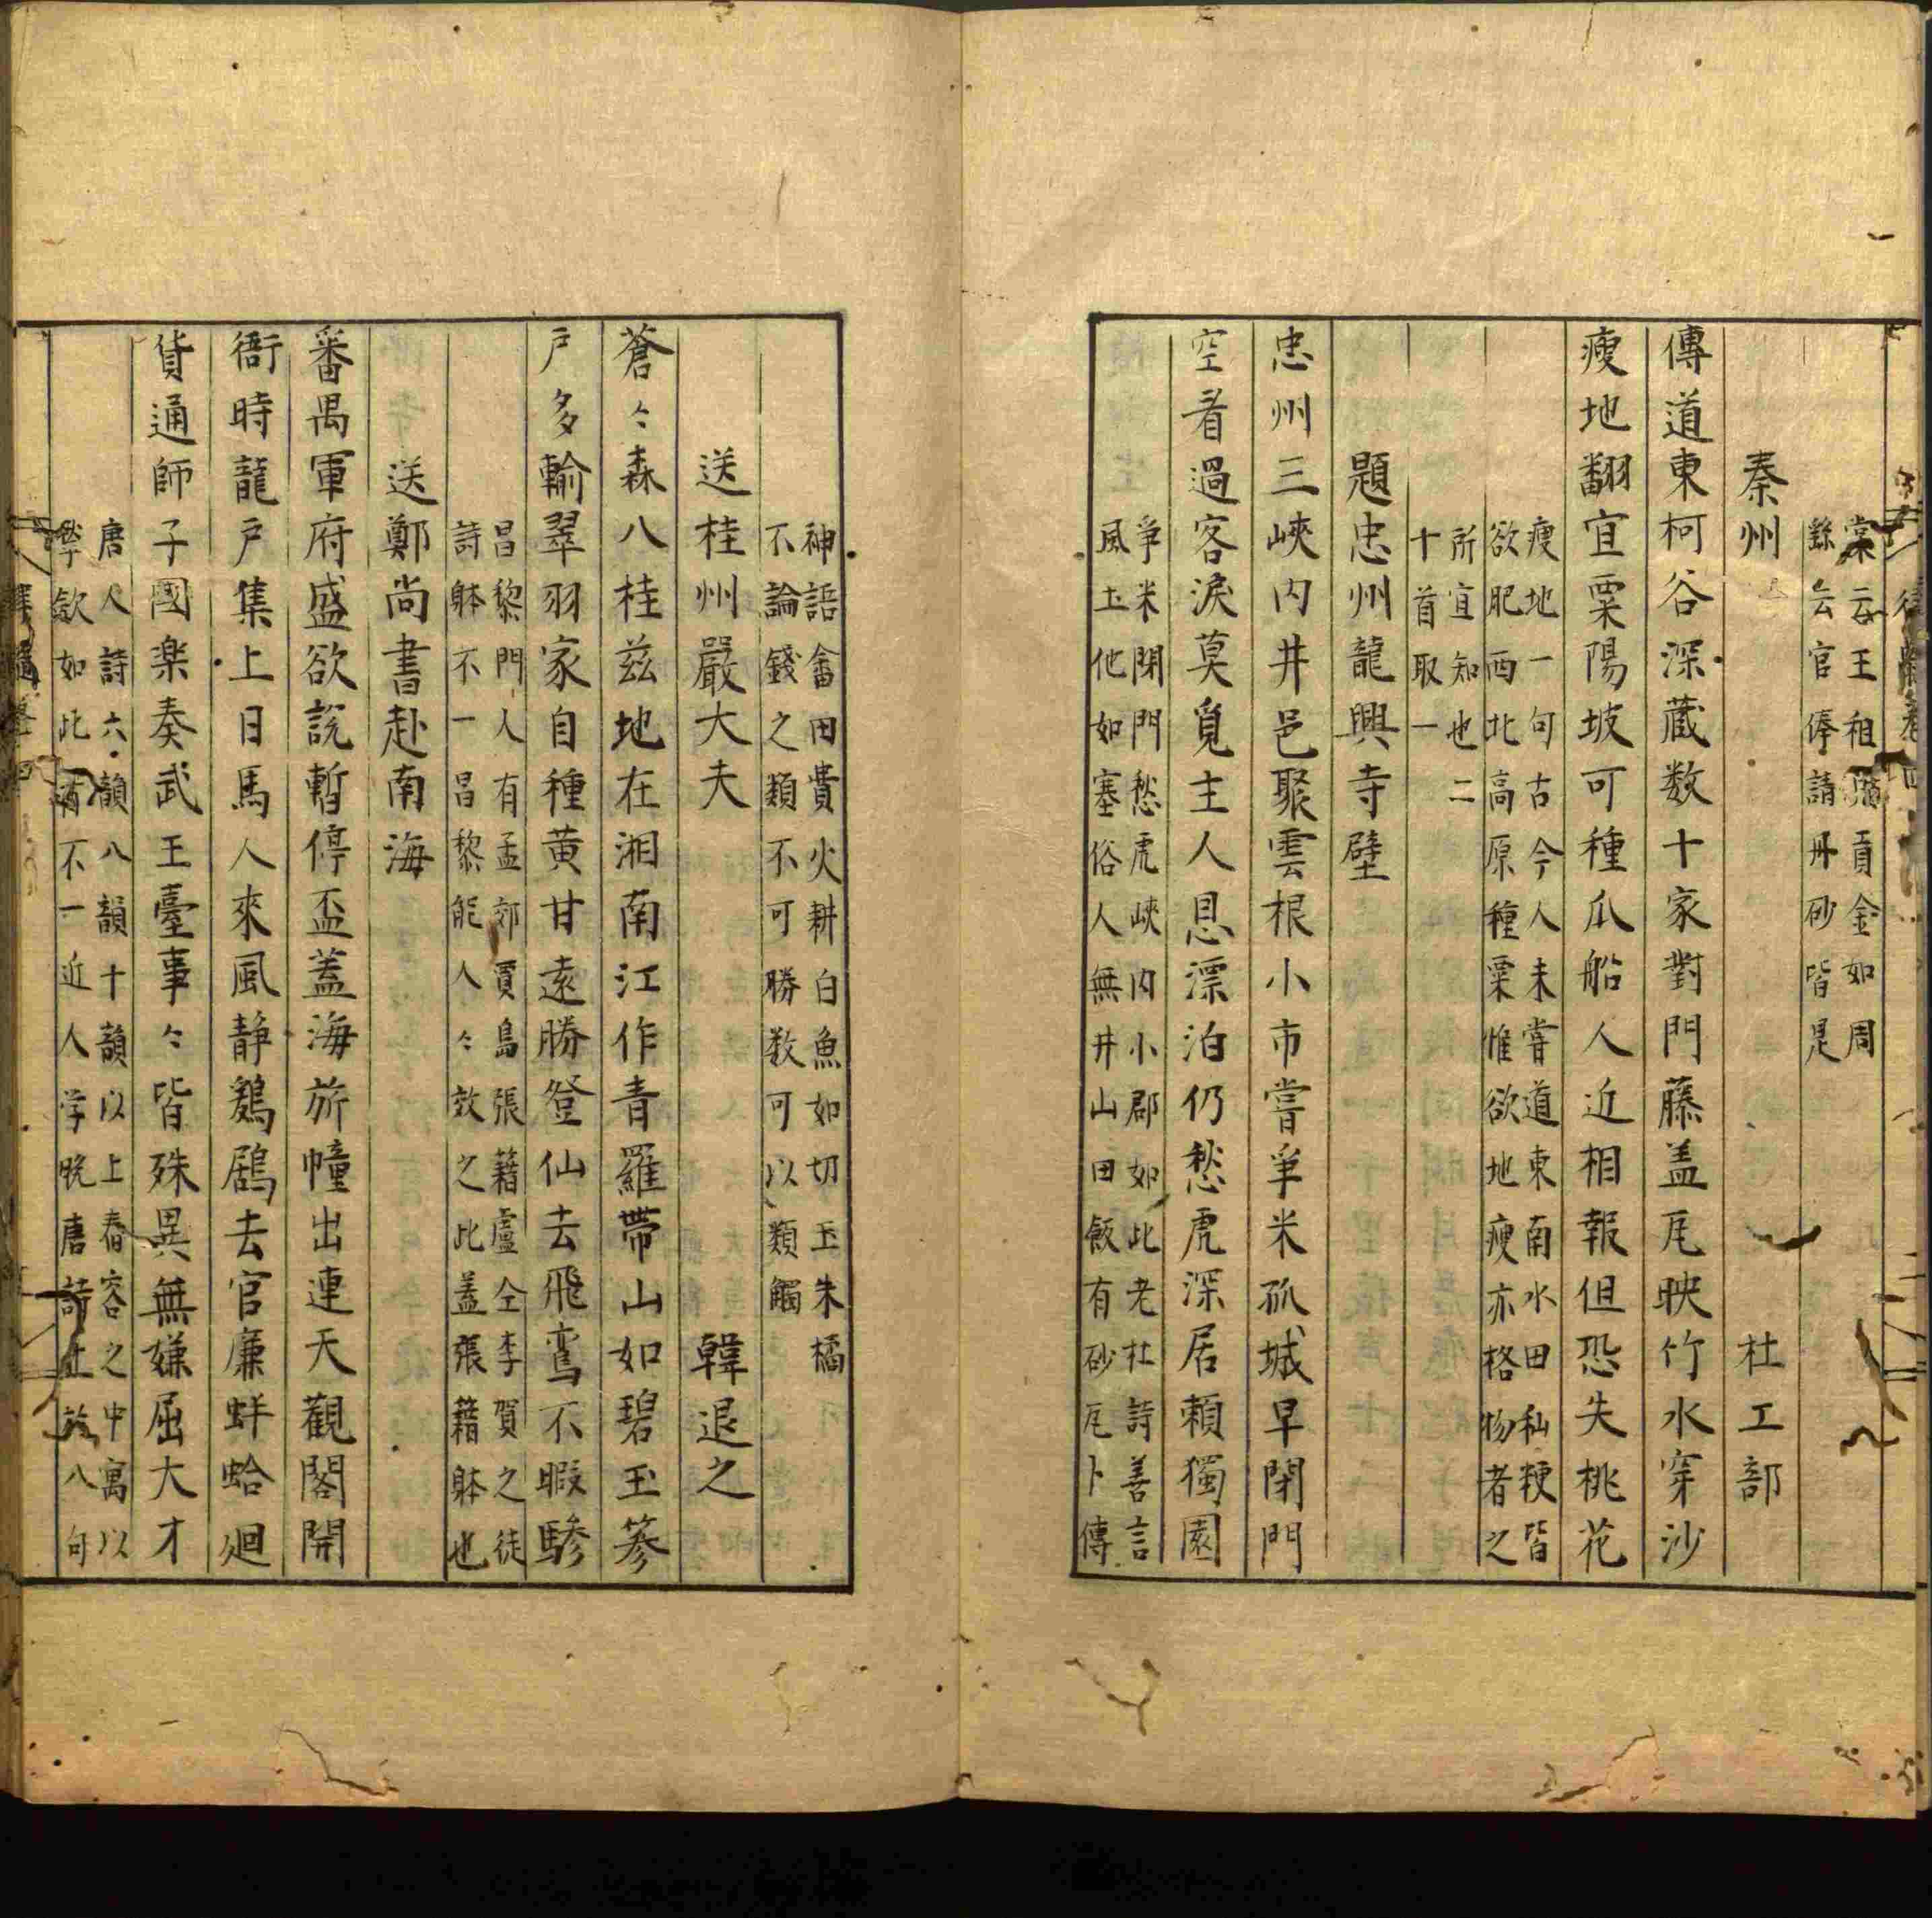 棠云王租
貢金如周
繇云官俸請丹砂皆是
秦州　杜工部
傳道東柯谷深藏数十家對門藤盖瓦映竹水穿沙
瘦地翻宜粟陽坡可種瓜船人近相報但恐失桃花
瘦地一句古今人未嘗道東南水田秈粳皆
欲肥西北高原種粟惟欲地瘦亦格物者之
所宜知也二
十首取一
題忠州龍興寺壁
忠州三峽内井邑聚雲根小市嘗爭米孤城早閉門
空看過客淚莫覓主人恩漂泊仍愁虎深居賴獨園
爭米閉門愁虎峽内小郡如此老杜詩善言
風土他如塞俗人無井山田飯有砂瓦卜傳
神語畬田費火耕白魚如切玉朱橘
不論錢之類不可勝数可以類觸
送桂州嚴大夫　韓退之
蒼〻森八桂茲地在湘南江作青羅帶山如碧玉篸
戶多輸翠羽家自種黄甘遠勝登仙去飛鸾不暇驂
昌黎門人有孟郊賈島張籍盧仝李賀之徒
詩躰不一昌黎能人〻效之此盖張籍躰也
送鄭尚書赴南海
番禺軍府盛欲說暫停盃蓋海旂幢出連天觀閣開
衙時龍戶集上日馬人來風静鷄鶋去官廉蚌蛤廻
貨通師子國楽奏武王臺事〻皆殊異無嫌屈大才
唐人詩六韻八韻十韻以上春容之中寓以
歛如此者不一近人学晚唐詩止於八句